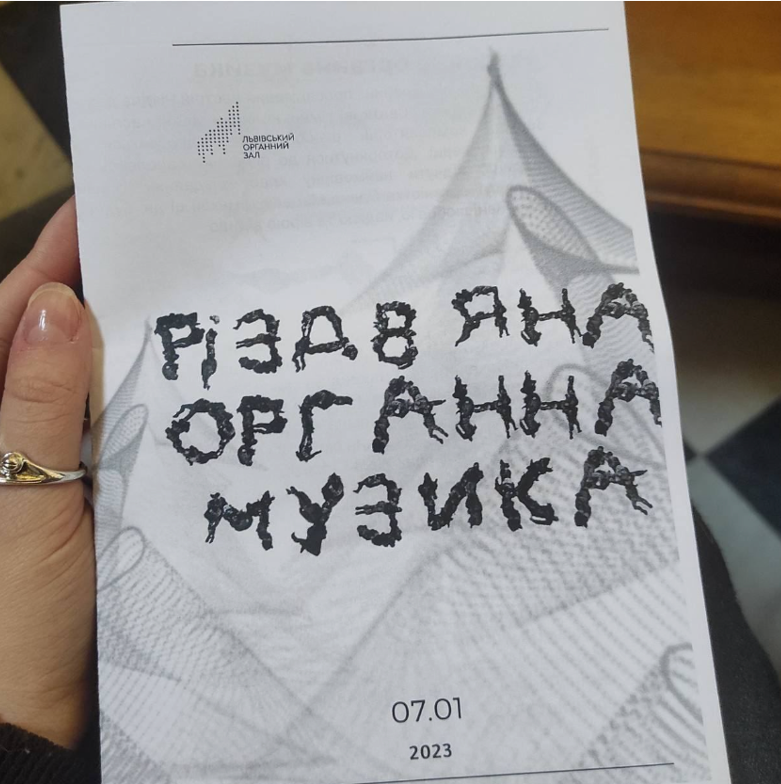 ЛЬВІВСЬКИЙ
ОРГАННИЙ
ЗАЛ
РІЗДВ ЯНА
ОРГАННА
МУЗИКА
07.01
2023